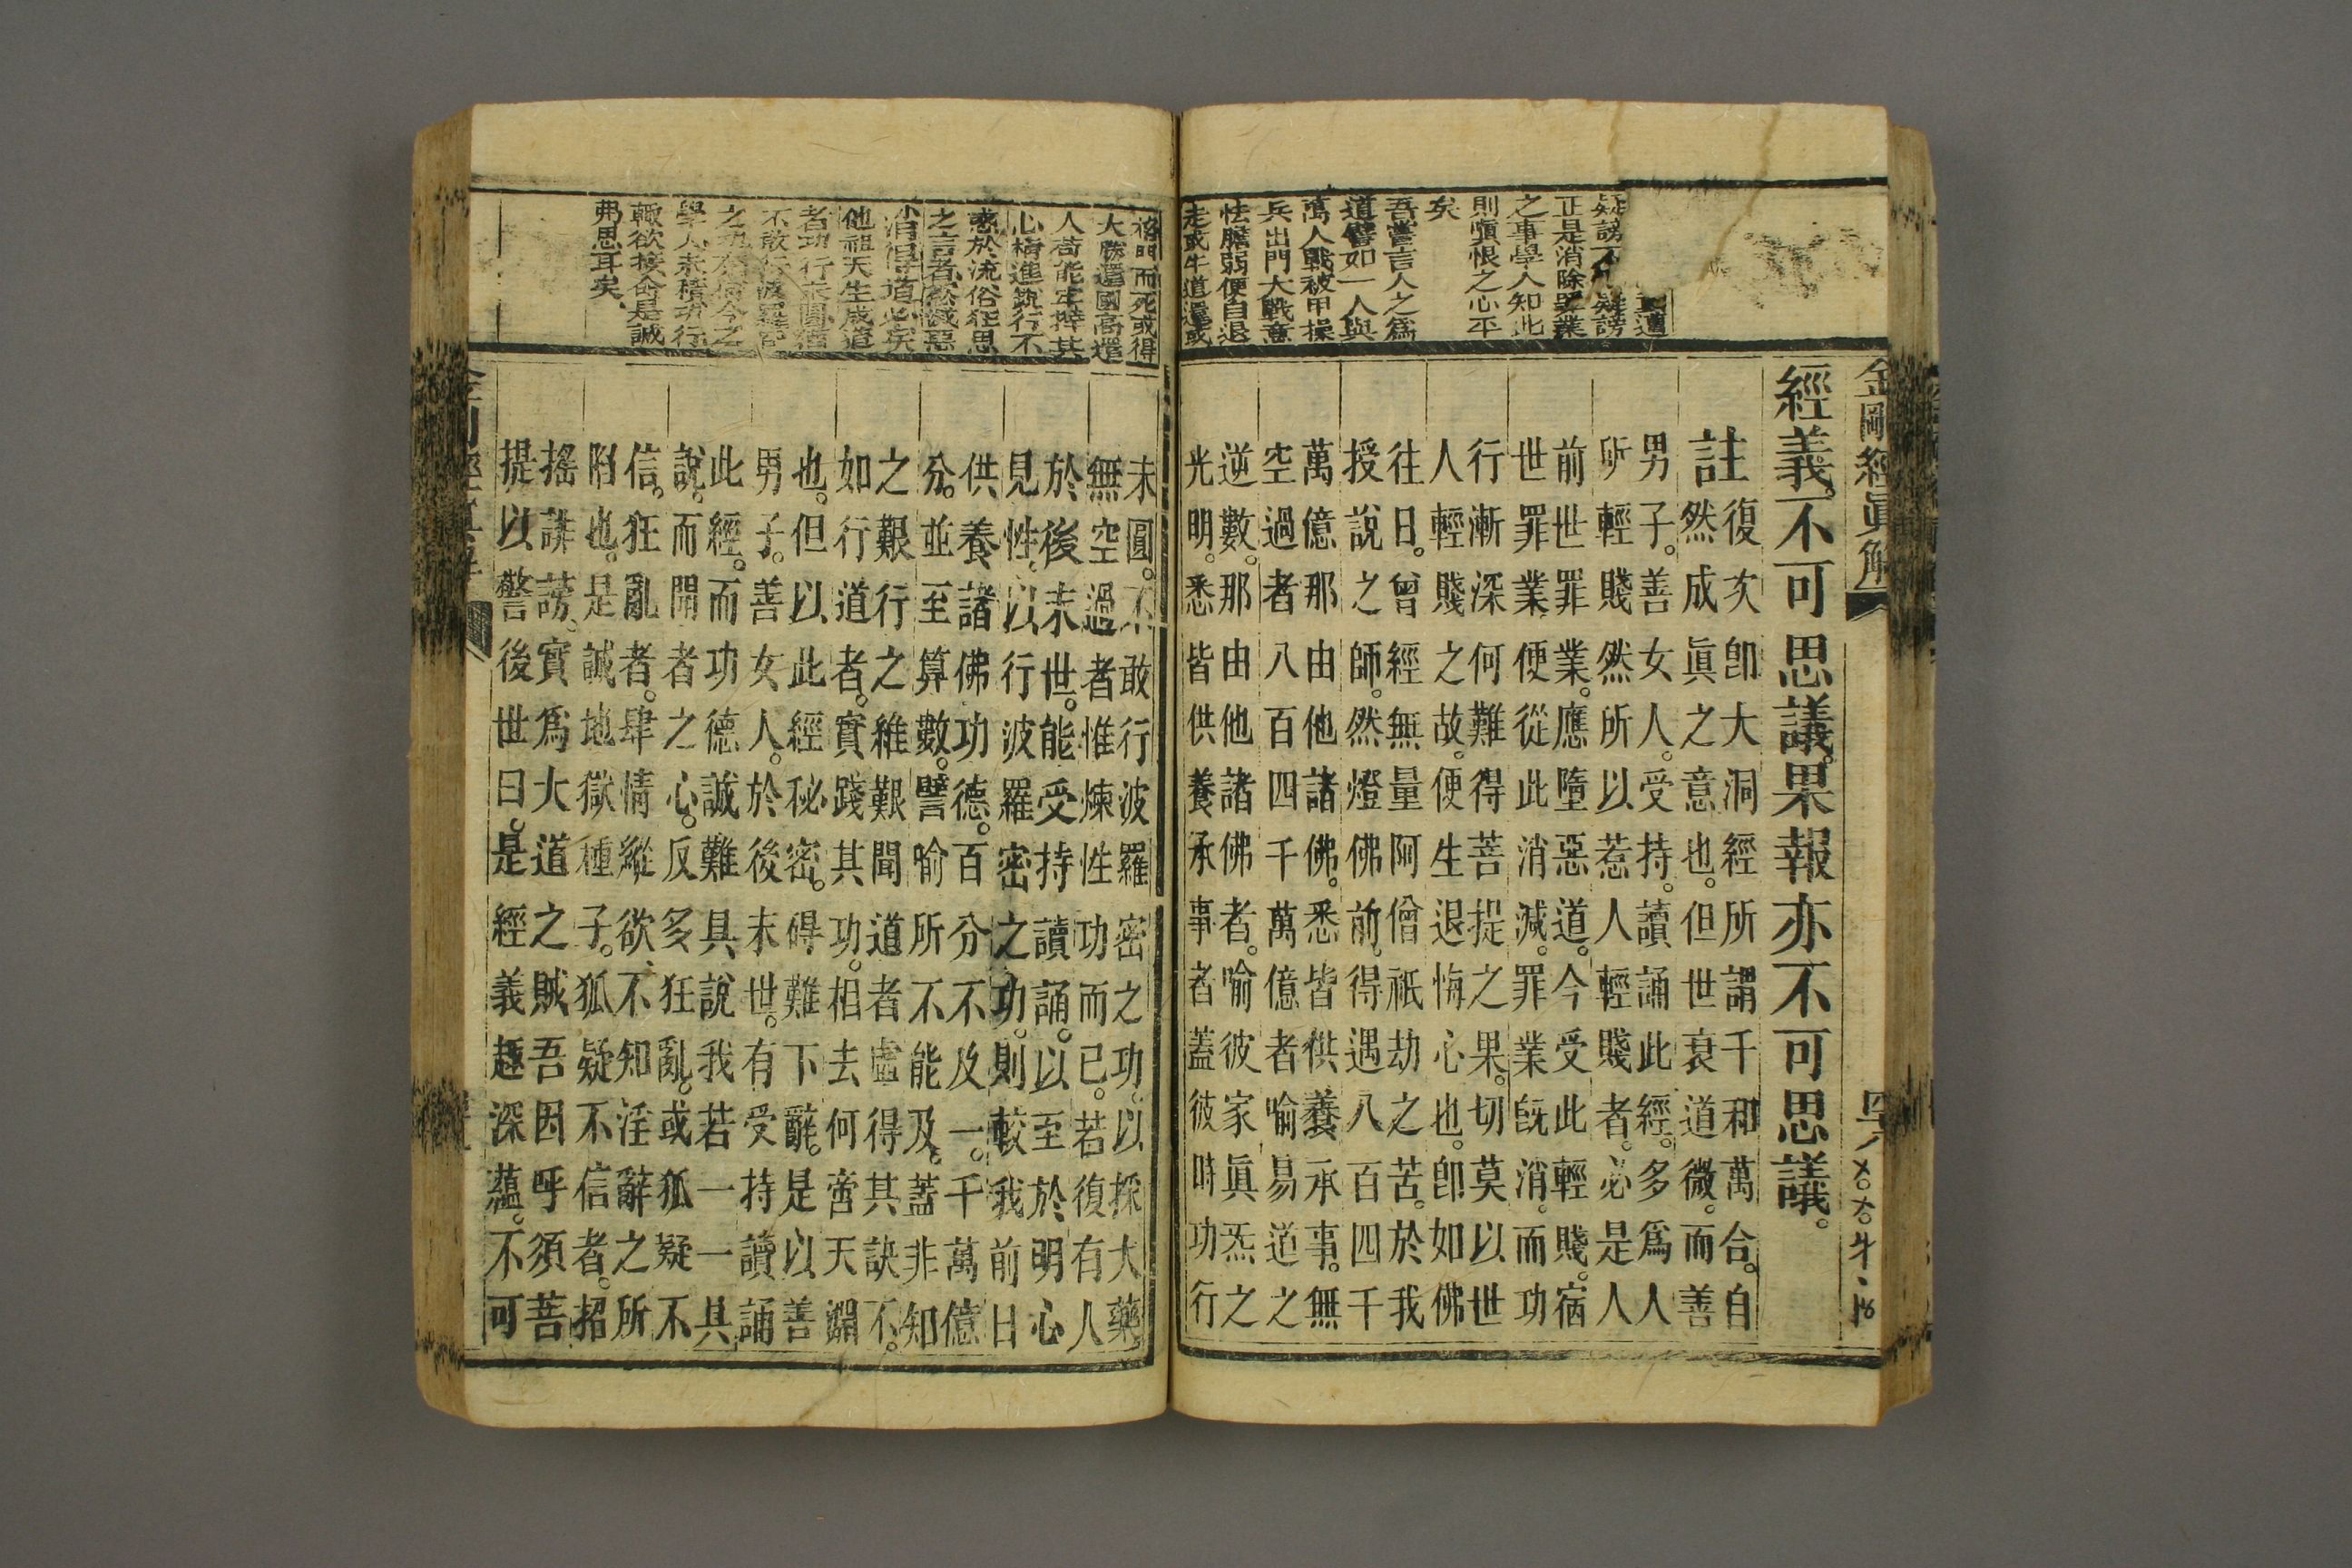 金剛經眞解
經義不可思議果報亦不可思議。
註
復次卽大洞經所謂千和萬合。自
然成眞之意也。但世衰道微。而善
男子。善女人。受持。讀誦此經。多爲人
所輕賤然所以惹人輕賤者。必是人
前世罪業。應墮惡道。今受此輕賤。宿
世罪業便從此消滅。罪業旣消。而功
行漸深何難得菩提之果。切莫以世
人輕賤之故。便生退悔心也。卽如佛
往日。曾經無量阿僧祇劫之苦。於我
授說之師。然燈佛前。得遇八百四千
萬億那由他諸佛。悉皆供養承事。無
空過者八百四千萬億者喻易道之
逆數。那由他諸佛者。喻彼家眞炁之
光明。悉皆供養承事者蓋彼時功行
未圓。不敢行波羅密之功。以採大藥
無空過者惟煉性功而已。若復有人
於後末世。能受持讀誦。以至於明心
見性。以行波羅密之功。則較我前日
供養諸佛功德。百分不及一。千萬億
分。並至算數。譬喻所不能及。蓋非知
之艱行之維艱聞道者虛得其訣不
如行道者。實踐其功。相去何啻天淵
也。但以此經秘密。碍難下辭。是以善
男子。善女人。於後末世。有受持讀誦
此經。而功德誠難具說我若一一具
說。而聞者之心。反多狂亂。或狐疑不
信。狂亂者。肆情縱欲、不知淫辭之所
陷也。是誠地獄種子。狐疑不信者。招
搖誹謗。實爲大道之賊吾因呼須菩
提以警後世曰。是經義趣深蘊。不可
疑謗不疑謗
正是消除罪業
之事學人知此
則愼恨之心平
矣
吾嘗言人之爲
道譬如一人與
萬人戰被甲操
兵出門大戰意
怯膽弱便自退
走或半道還或
格鬥而死或得
大勝還國高遷
人苟能牢持其
心精進銳行不
惑於流俗狂愚
之言者欲滅惡
消得道必矣
他祖天生成道
者功行未圓猶
學人未積功行
輒欲接命是誠
弗思耳矣、